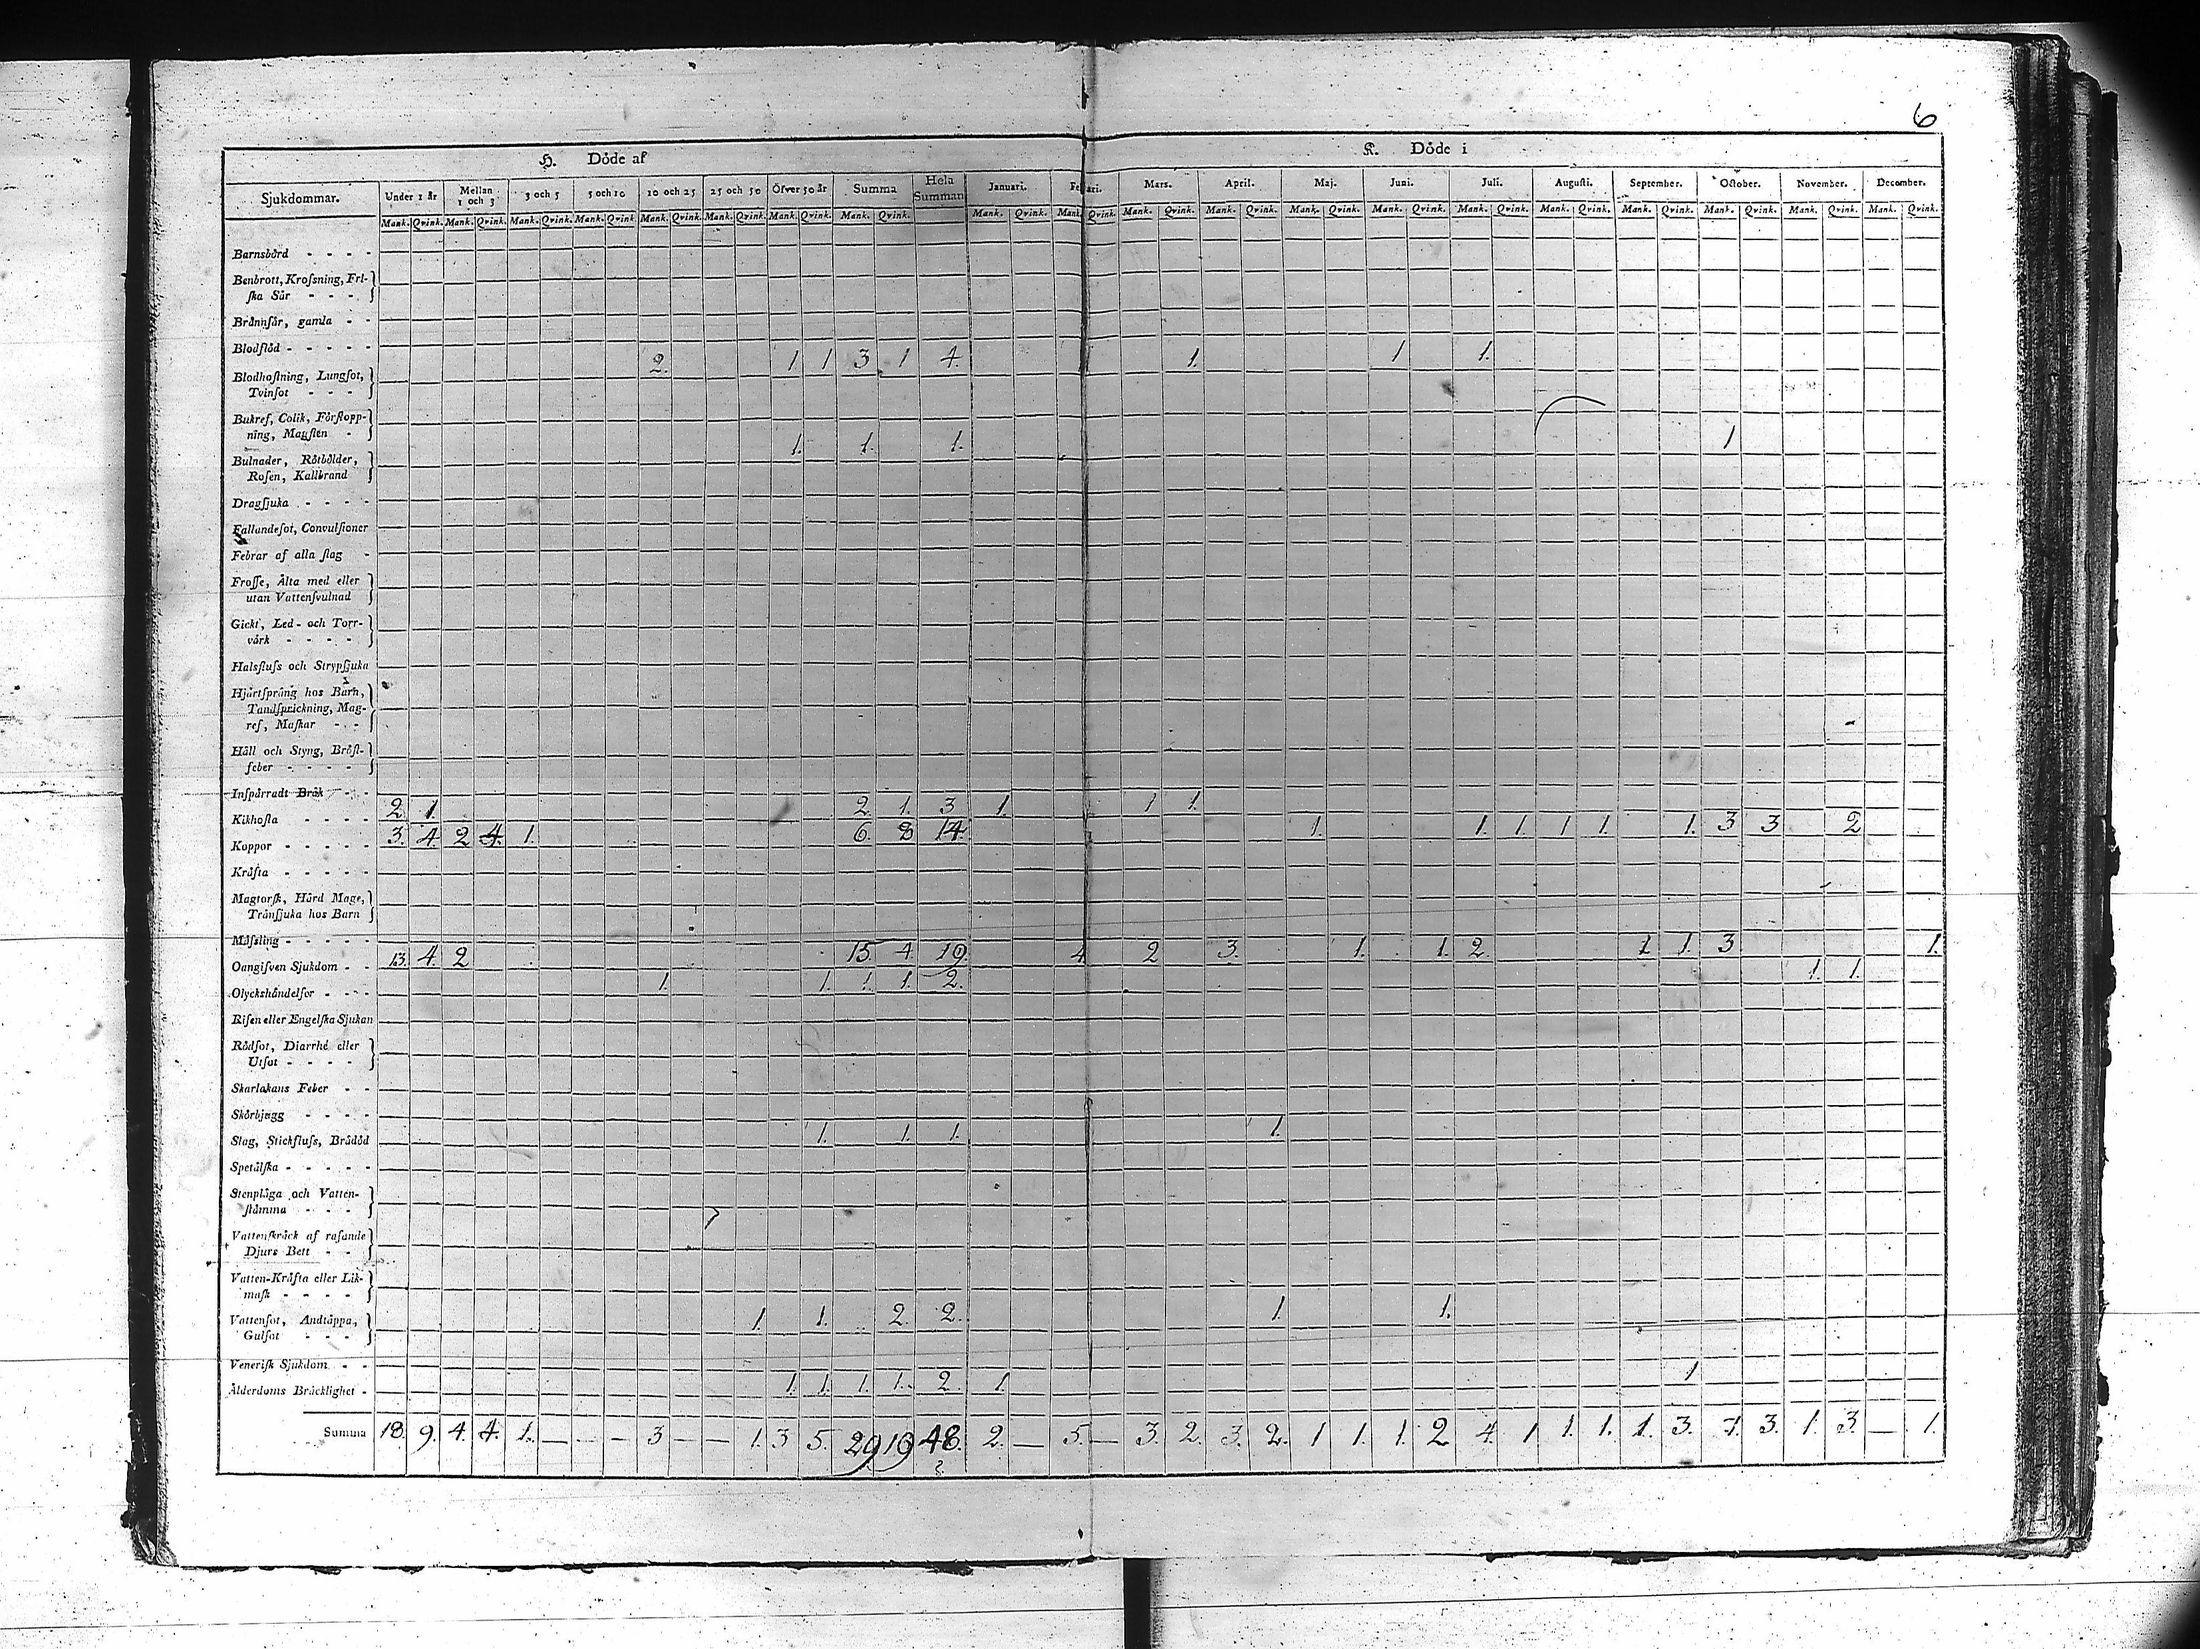 6
H. Döde af
K. Döde i
Sjukdommar. Under 1 år Mellan 1 och 3 3 och 5 5 och 10 10 och 25 25 och 50 Öfver 50 år Summa Hela Summan Januari. Mars. April. Maj. Juni. Juli. Augusti. September. October. November. December.
Mank. Qvink. Mank. Qvink. Mank. Qvink. Mank. Qvink. Mank. Qvink. Mank. Qvink. Mank. Qvink. Mank. Qvink. Mank. Qvink. Mank. Qvink. Mank. Qvink. Mank. Qvink. Mank. Qvink. Mank. Qvink. Mank. Qvink. Mank. Qvink. Mank. Qvink. Mank. Qvink. Mank. Qvink. Mank. Qvink.
Barnsbörd - - - -
Benbrott, Krosning, Fri-
ska Sår - - -
Brännsår, gamla - -
Blodflöd - - - - -
2. 1 1 3 1 4. 1. 1 1.
Blodhostning, Lungsot,
Tvinsot - - -
Bukref, Colik, Förstopp-
ning, Magsten -
1. 1. 1. 1
Bulnader, Rötbölder,
Rosen, Kallbrand
Dragsjuka - - - -
Fallandesot, Convulsioner
Febrar af alla slag -
Frosse, Älta med eller
utan Vattensvulnad
Gickt, Led- och Torr-
värk - - - -
Halsfluss och Strypsjuka
Hjärtsprång hos Barn,
Tandsprickning, Mag-
ref, Maskar - -
Håll och Styng, Bröst-
feber - - - -
Inspärradt Bråk - -
2 1 2 1. 3 1. 1 1.
Kikhosta - - - -
3. 4. 2 4. 1. 6. 8 14. 1. 1. 1. 1 1. 1. 3 3 2
Koppor - - - - -
Kräfta - - - - -
Magtorsk, Hård Mage,
Tränsjuka hos Barn
Mässling - - - - -
13. 4. 2 15 4. 19. 4 2 3. 1. 1. 2. 1 1. 3 1.
Oangifven Sjukdom - -
1. 1. 1. 1. 2. 1. 1.
Olyckshändelser - - -
Risen eller Engelska Sjukan
Rödsot, Diarrhé eller
Utsot - - - -
Skarlakans Feber - -
Skörbjugg - - - -
Slag, Stickfluss, Brådöd
1. 1. 1. 1.
Spetälska - - - - -
Stenplåga och Vatten-
stämma - - -
Vattuskräck af rasande
Djurs Bett - -
Vatten-Kräfta eller Lik-
mask - - - -
Vattensot, Andtäppa,
Gulsot - - -
1. 1. 2. 2. 1. 1.
Venerisk Sjukdom - -
Ålderdoms Bräcklighet -
1. 1. 1. 1. 2. 1. 1
Summa 18. 9. 4. 4. 1. — — — 3 — — 1. 3 5. 29 19 48. 2. — 5. — 3. 2. 3. 2. 1 1. 1. 2 4. 1 1. 1. 1. 3. 7. 3. 1. 3. — 1.